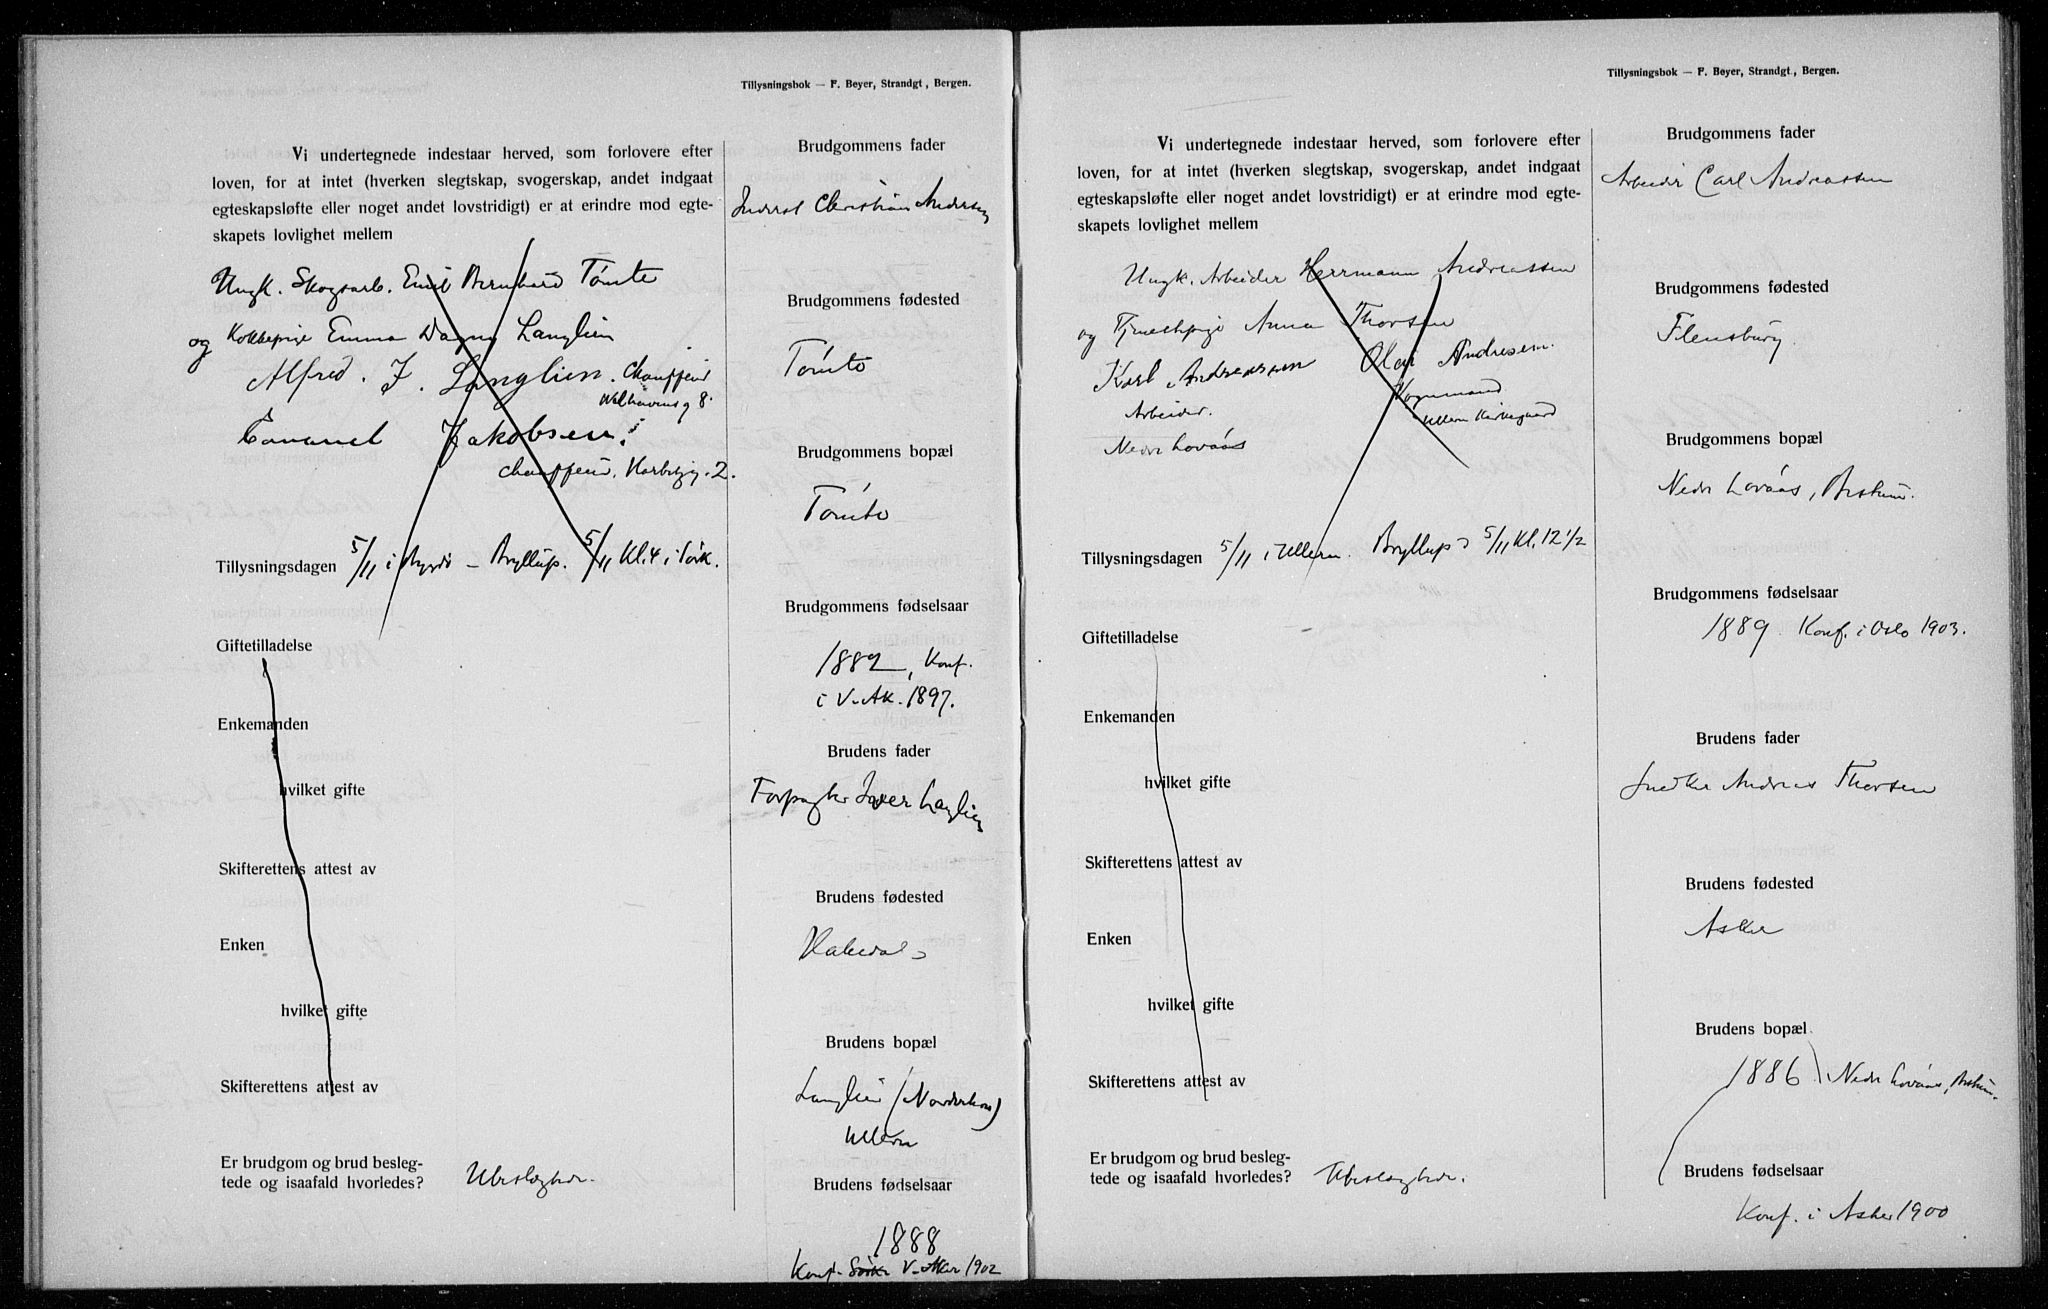 Tillysningsbok — F. Beyer, Strandgt, Bergen.
Vi undertegnede indestaar herved, som forlovere efter
loven, for at intet (hverken slegtskap, svogerskap, andet indgaat
egteskapsløfte eller noget andet lovstridigt) er at erindre mod egte-
skapets lovlighet mellem
Ungk. Skogsarb. Emil Bernhard Tømte
og Kokkepige Emma Dagny Langlien
Alfred. J. Langlien. Chauffeur
Welhavensg 8.
Emanuel Jakobsen
Chauffeur. 2.
Tillysningsdagen 5/11 i Bygdø – Bryllup. 5/11 Kl. 4 i
Giftetilladelse
Enkemanden
hvilket gifte
Skifterettens attest av
Enken
hvilket gifte
Skifterettens attest av
Er brudgom og brud besleg-
tede og isaafald hvorledes? Ubeslægtede.
Brudgommens fader
Inderst Christian Andersen
Brudgommens fødested
Tømte
Brudgommens bopæl
Tømte
Brudgommens fødselsaar
1882, Konf.
i V. Ak. 1897.
Brudens fader
Forpagter Iver Langlien
Brudens fødested
Hakedal
Brudens bopæl
Langlien (Norderhov)
Ullern
Brudens fødselsaar
1888
Konf. V. Aker 1902
Tillysningsbok — F. Beyer, Strandgt., Bergen.
Vi undertegnede indestaar herved, som forlovere efter
loven, for at intet (hverken slegtskap, svogerskap, andet indgaat
egteskapsløfte eller noget andet lovstridigt) er at erindre mod egte-
skapets lovlighet mellem
Ungk. Arbeider Herrmann Andreassen
og Tjenestpige Anna Thorsen
Karl Andreassen Olai Andresen.
Vognmand
Arbeider. Ullern Kirkegaard
Nedre Lovaas
Tillysningsdagen 5/11 i Ullern. Bryllup 5/11 Kl. 12 1/2
Giftetilladelse
Enkemanden
hvilket gifte
Skifterettens attest av
Enken
hvilket gifte
Skifterettens attest av
Er brudgom og brud besleg-
tede og isaafald hvorledes? Ubeslægtede.
Brudgommens fader
Arbeider Carl Andreassen
Brudgommens fødested
Flensburg.
Brudgommens bopæl
Nedr Lovaas, Bestum.
Brudgommens fødselsaar
1889. Konf. i Oslo 1903.
Brudens fader
Snedker Andreas Thorsen
Brudens fødested
Asker
Brudens bopæl
1886 Nedr Lovaas, Bestum.
Brudens fødselsaar
Konf. i Asker 1900